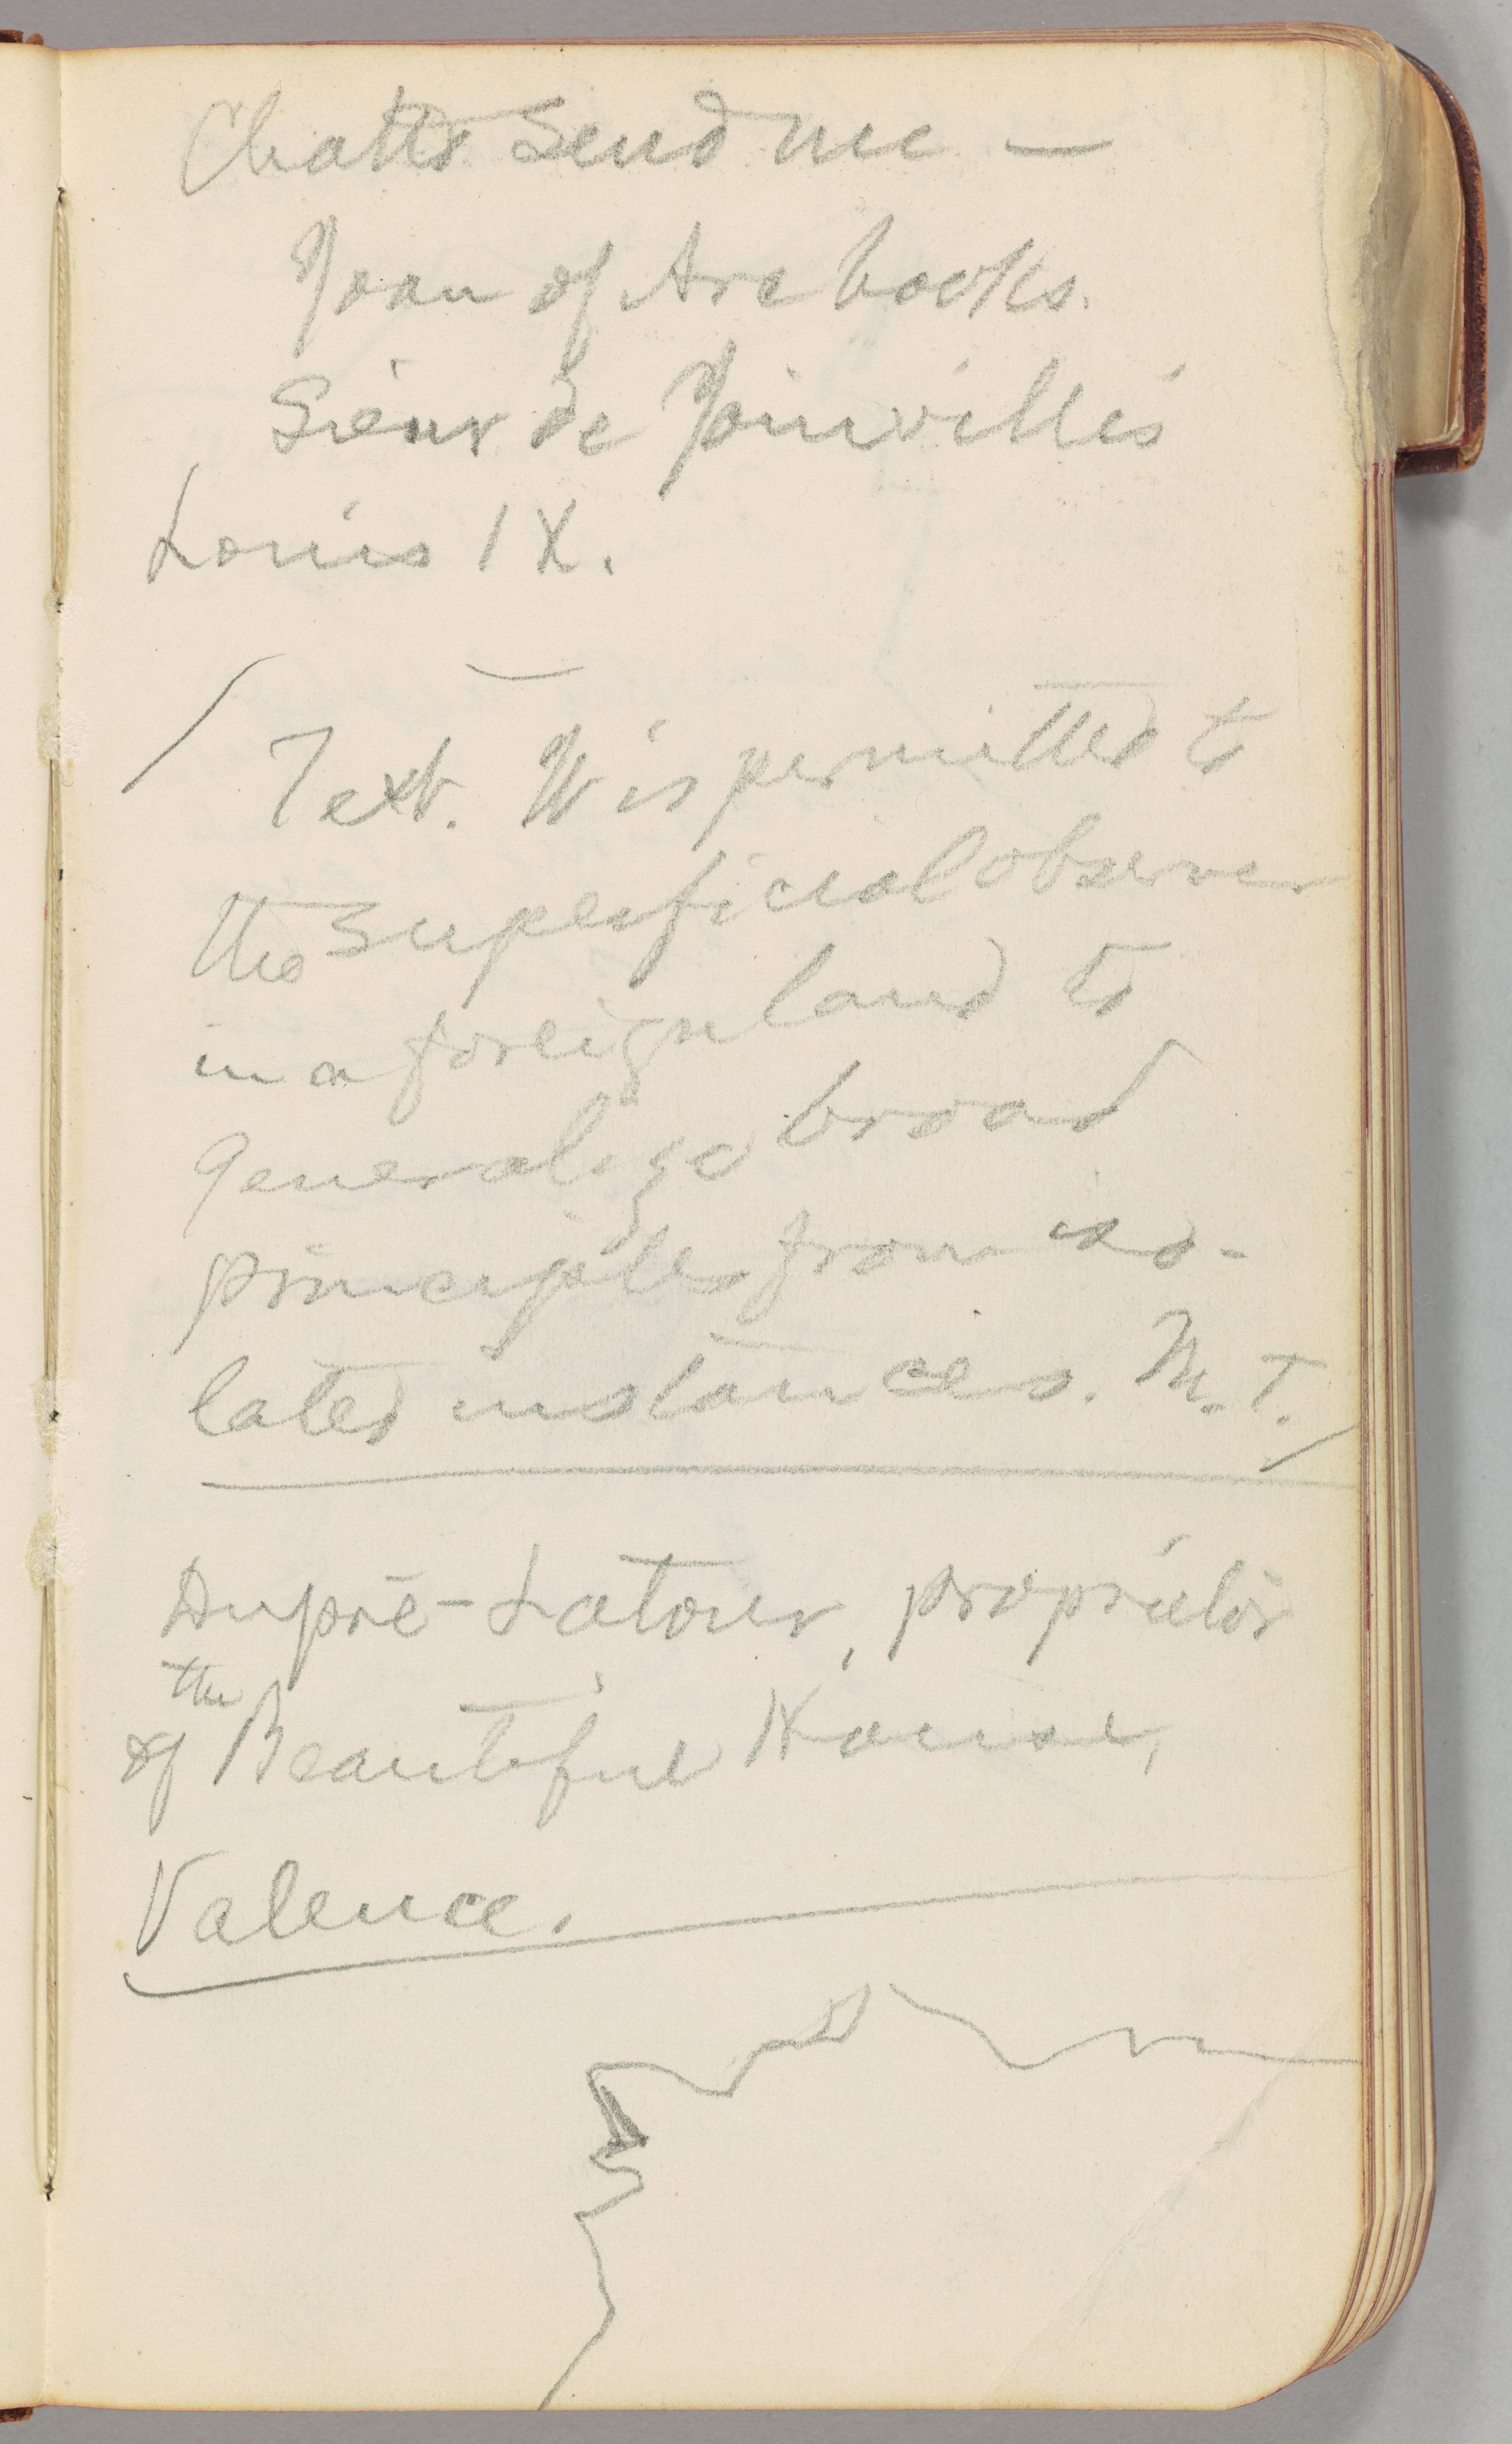 Chatto send me —
Joan of Arc books.
Sieur de Joinville's
Louis IX.
Text. It is permitted to
the superficial observer
in a foreign land to
generalize broad
principles from iso-
lated instances. M. T.
Dupré-Latour, proprietor
of the Beautiful House,
Valence.